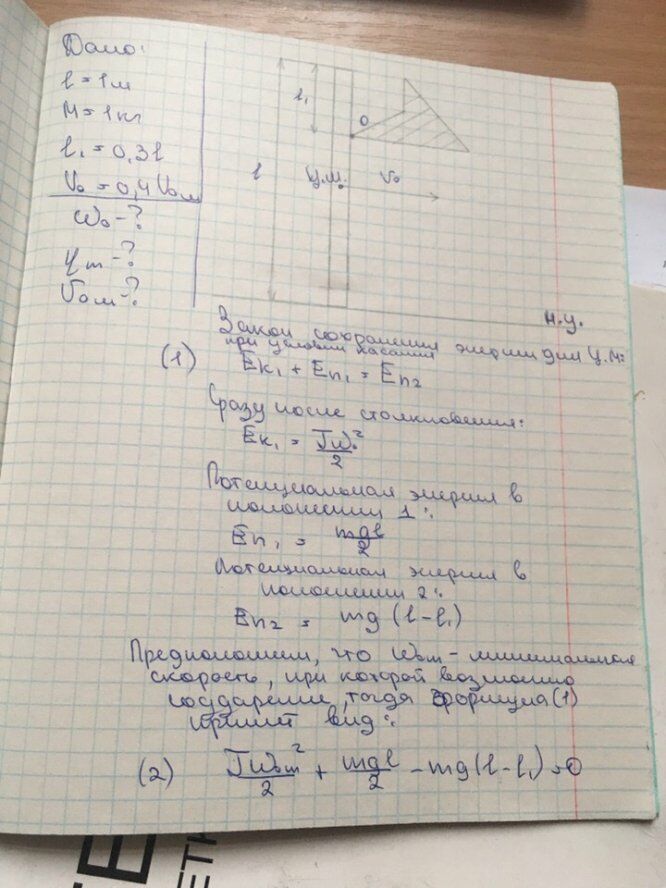 Дано:
l = 1 м
M = 1 кг
l₁ = 0,3 l
V₀ = 0,4 V₀м
ω₀ - ?
φm - ?
V₀м - ?
l₁
O
l
ц.м.
V₀
н.у.
Закон сохранения энергии для ц.м:
при условии касания
(1) Eк₁ + Eп₁ = Eп₂
Сразу после столкновения:
Eк₁ = Jω₀²/2
Потенциальная энергия в
положении 1:
Eп₁ = mgl/2
Потенциальная энергия в
положении 2:
Eп₂ = mg (l - l₁)
Предположим, что ω₀m - минимальная
скорость, при которой возможно
соударение, тогда формула (1)
примет вид:
(2) Jω₀m²/2 + mgl/2 - mg(l - l₁) = 0
ЕТК